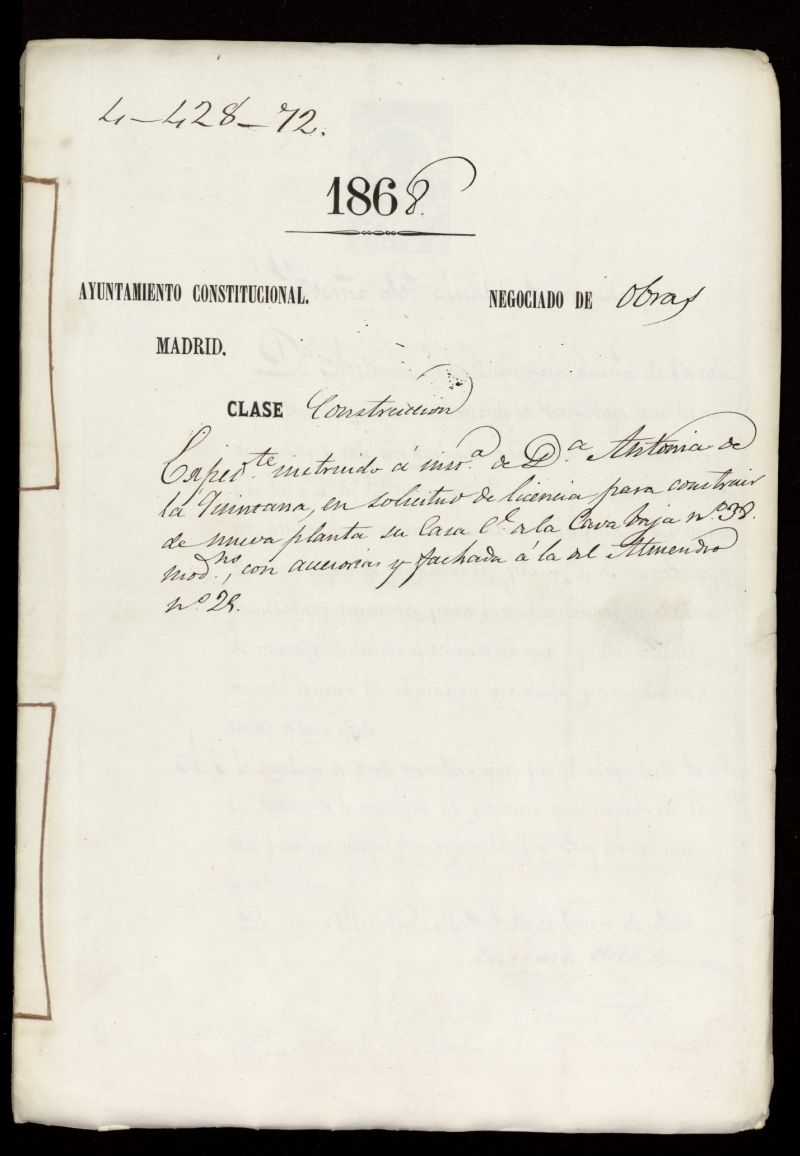 4-428-72.
1868.
AYUNTAMIENTO CONSTITUCIONAL. NEGOCIADO DE Obras
MADRID.
CLASE Construccion
Exped.te instruido á inst.a de D.a Antonia de
la Quintana, en solicitud de licencia para construir
de nueva planta su Casa C.e de la Cava baja n.o 38.
mod.no, con accesorias y fachada á la del Almendro
n.o 25